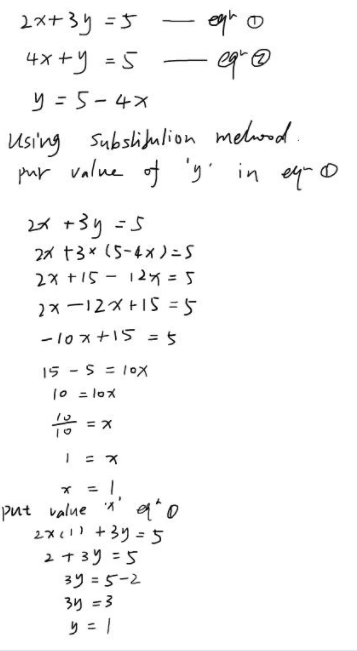 2x+3y = 5 — eqn ①
4x+y = 5 — eqn ②
y = 5-4x
Using Substitution method.
put value of 'y' in eqn ①
2x +3y = 5
2x +3×(5-4x)=5
2x +15 - 12x = 5
2x -12x+15 = 5
-10x+15 = 5
15 - 5 = 10x
10 = 10x
10/10 = x
1 = x
x = 1
put value 'x' eqn ①
2×(1) +3y = 5
2 + 3y = 5
3y = 5-2
3y = 3
y = 1